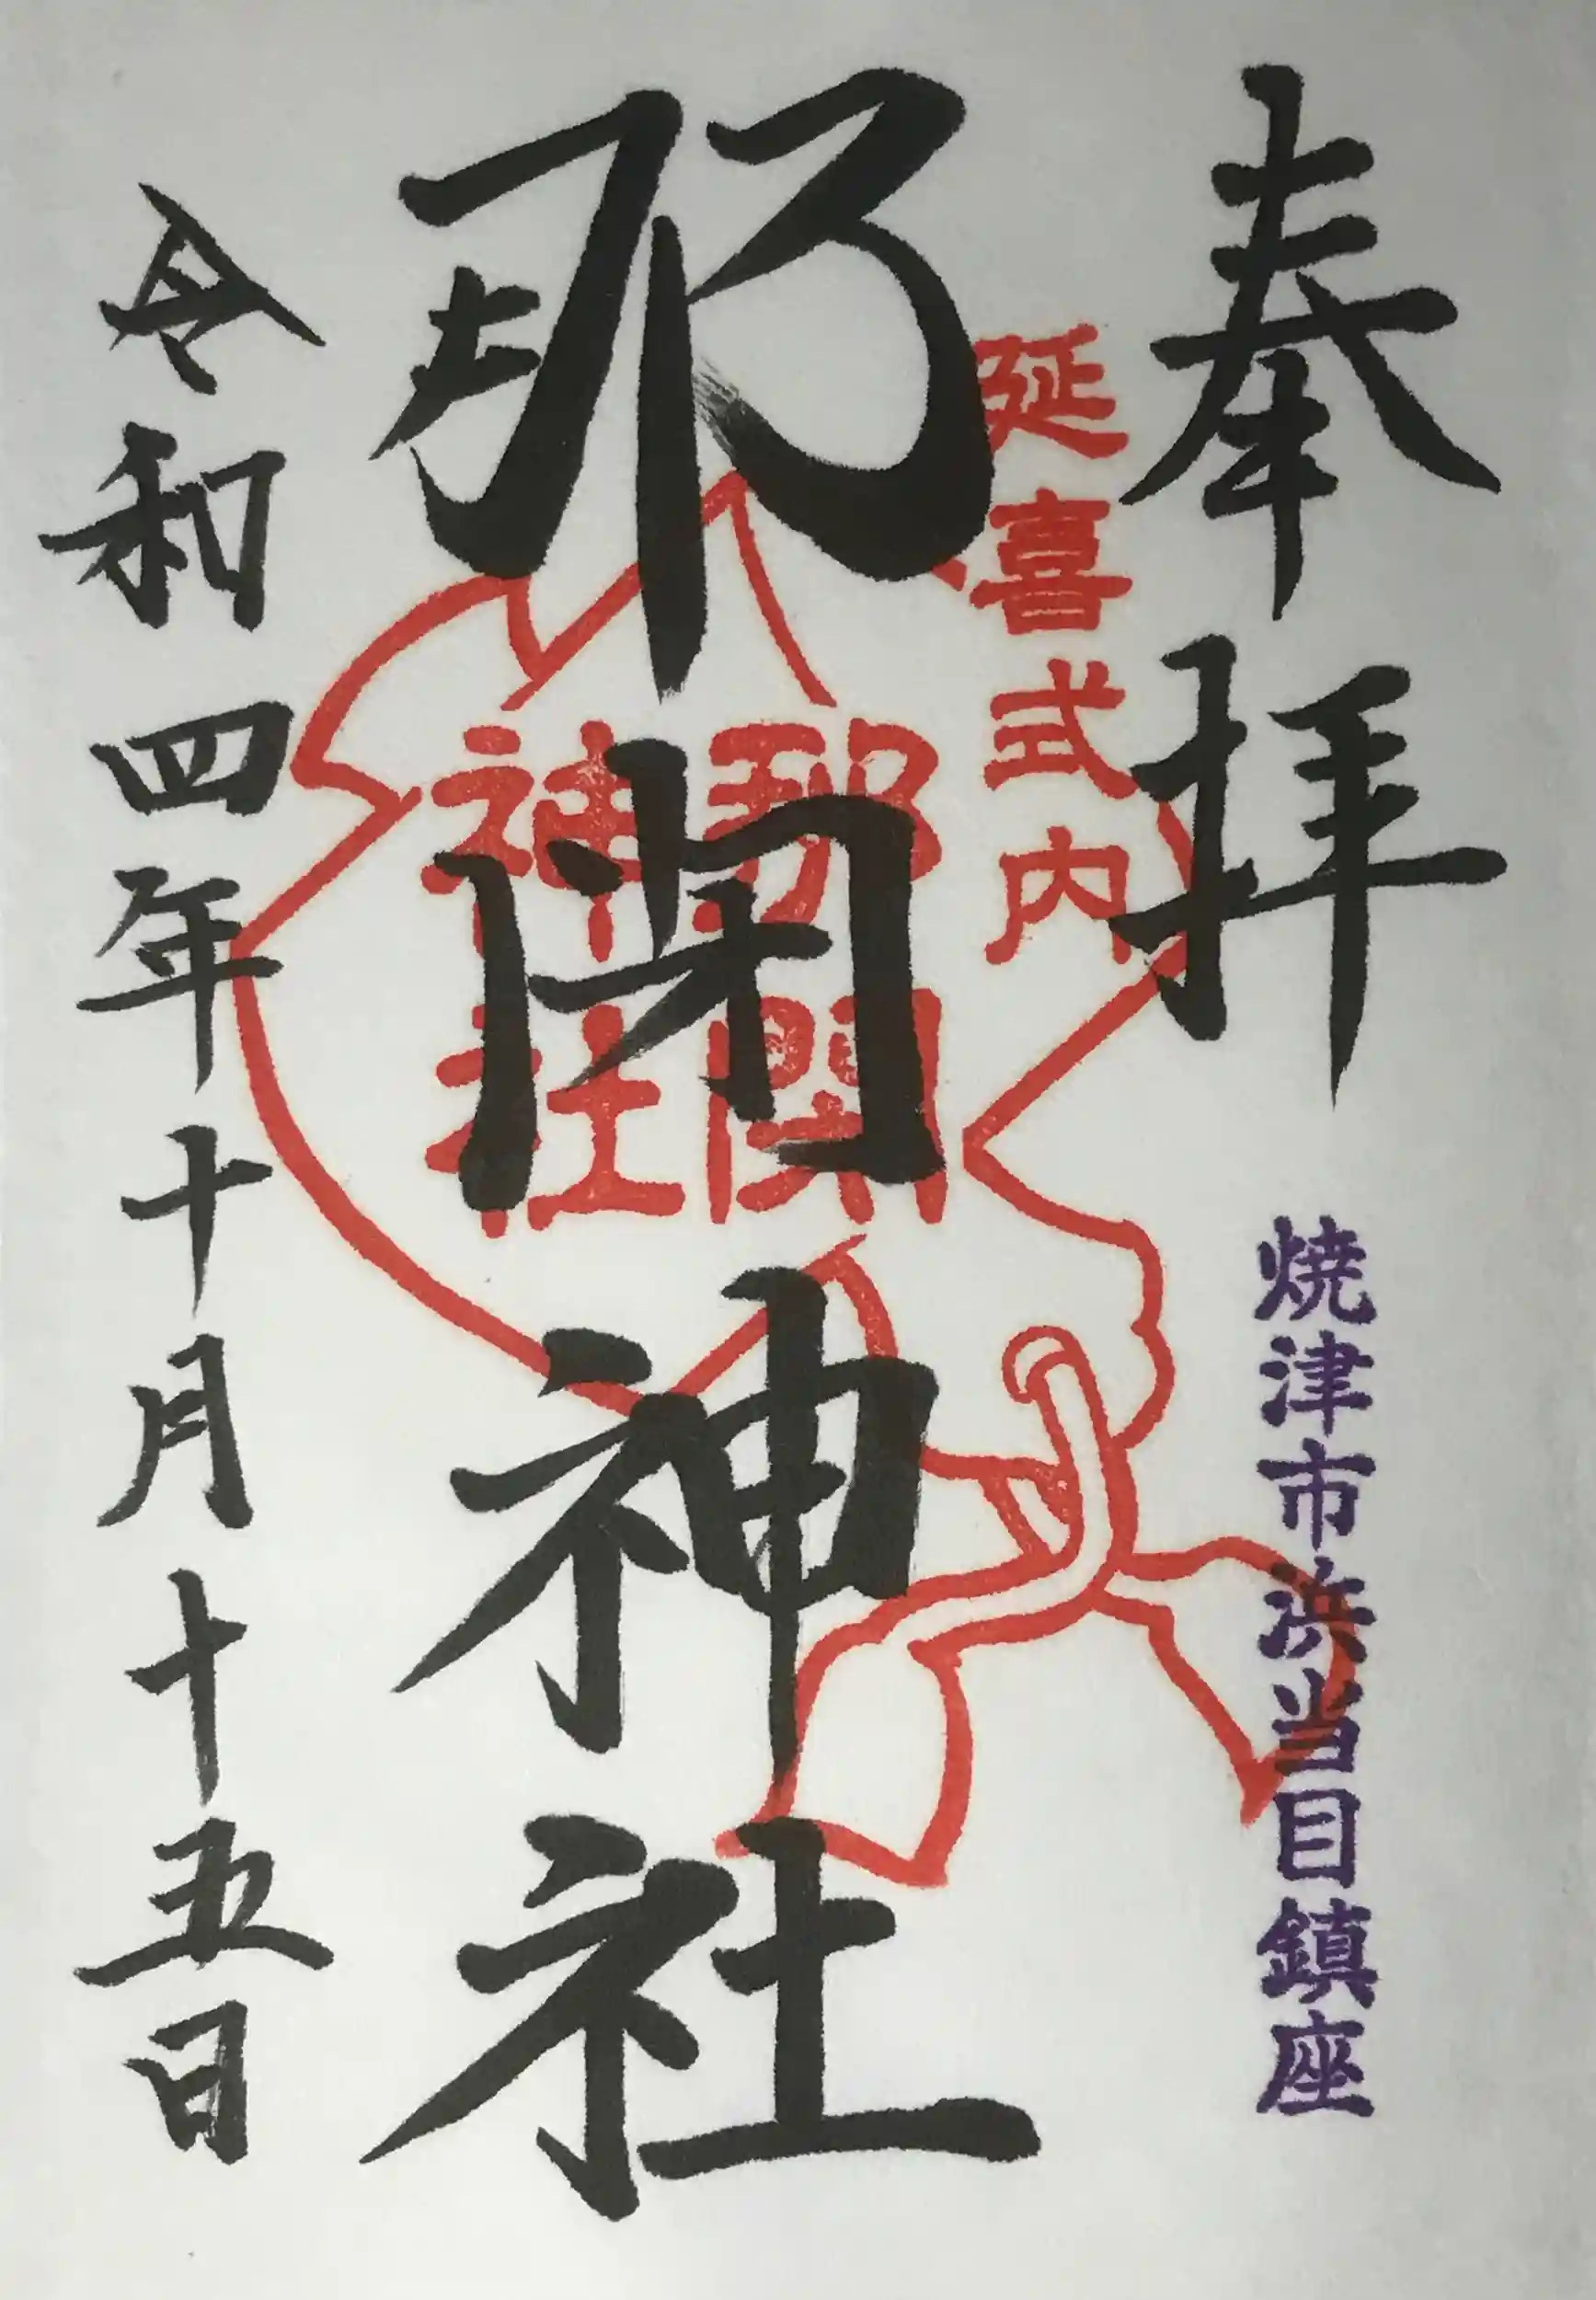 奉拝
焼津市浜当目鎮座
延喜式内
那閇神社
那閇
神社
令和四年十月十五日